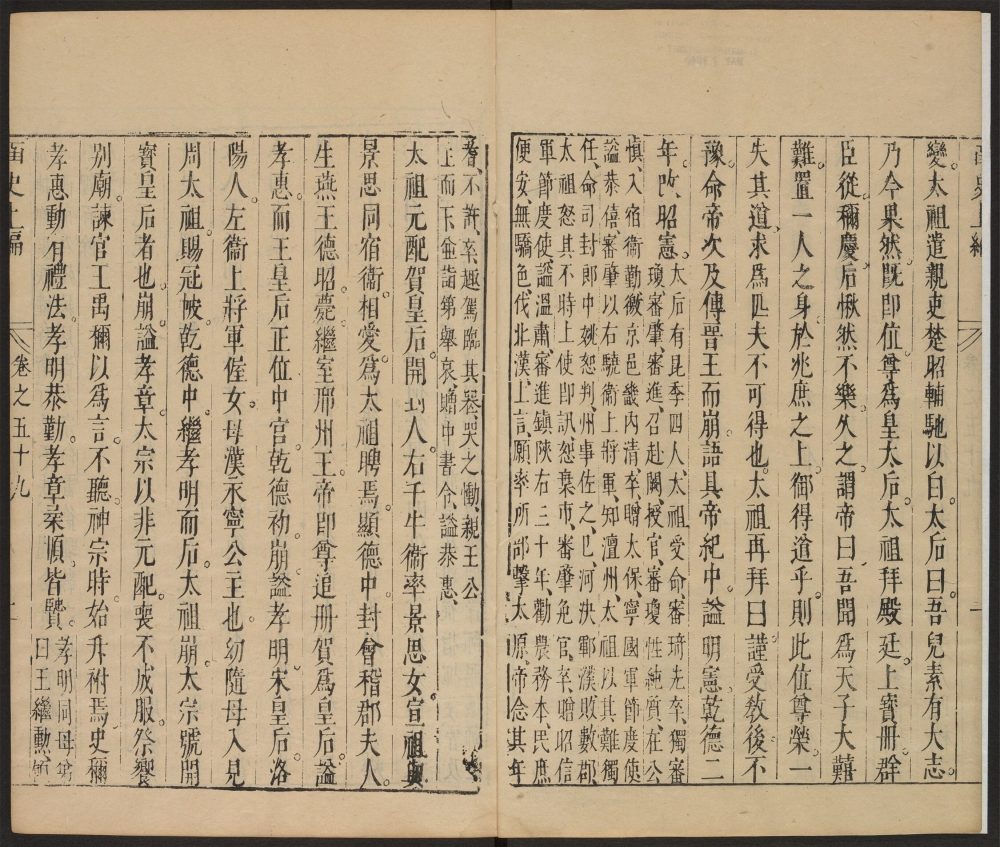 變太祖遣親吏楚昭輔馳以白太后曰吾兒素有大志
乃今果然既即位尊爲皇太后太祖拜殿廷上寶冊群
臣從稱慶后愀然不樂久之謂帝曰吾聞爲天子大難
難置一人之身於兆庶之上御得道乎則此位尊榮一
失其道求爲匹夫不可得也太祖再拜曰謹受敎後不
豫命帝次及傳晉王而崩語具帝紀中謚明憲乾德二
年改昭憲
太后有昆季四人太祖受命審琦先卒獨審
瓊審肇審進召赴闕授官審瓊性純質在公
慎入宿衞勤徼京邑畿内清卒贈太保寧國軍節度使
謚恭僖審肇以右驍衞上將軍知澶州太祖以其難獨
任命司封郎中姚恕判州事佐之已河決鄆濮敗數郡
太祖怒其不時上使即訊恕棄市審肇免官卒贈昭信
軍節度使謚溫肅審進鎭陝右二十年勸農務本民庶
便安無驕色伐北漢上言願率所部擊太原帝念其年
耆不許卒趣駕臨其喪哭之慟親王公
主而下並詣第舉哀贈中書令謚恭惠
太祖元配賀皇后開封人右千牛衞率景思女宣祖與
景思同宿衞相愛爲太祖聘焉顯德中封會稽郡夫人
生燕王德昭薨繼室邠州王帝即尊追冊賀爲皇后謚
孝惠而王皇后正位中宮乾德初崩謚孝明宋皇后洛
陽人左衞上將軍偓女母漢永寧公主也幼隨母入見
周太祖賜冠帔乾德中繼孝明而后太祖崩太宗號開
寶皇后者也崩謚孝章太宗以非元配喪不成服祭饗
別廟諫官王禹偁以爲言不聽神宗時始升祔焉史稱
孝惠動有禮法孝明恭勤孝章柔順皆賢
孝明同母
曰王繼勳
函史上編
卷之五十九